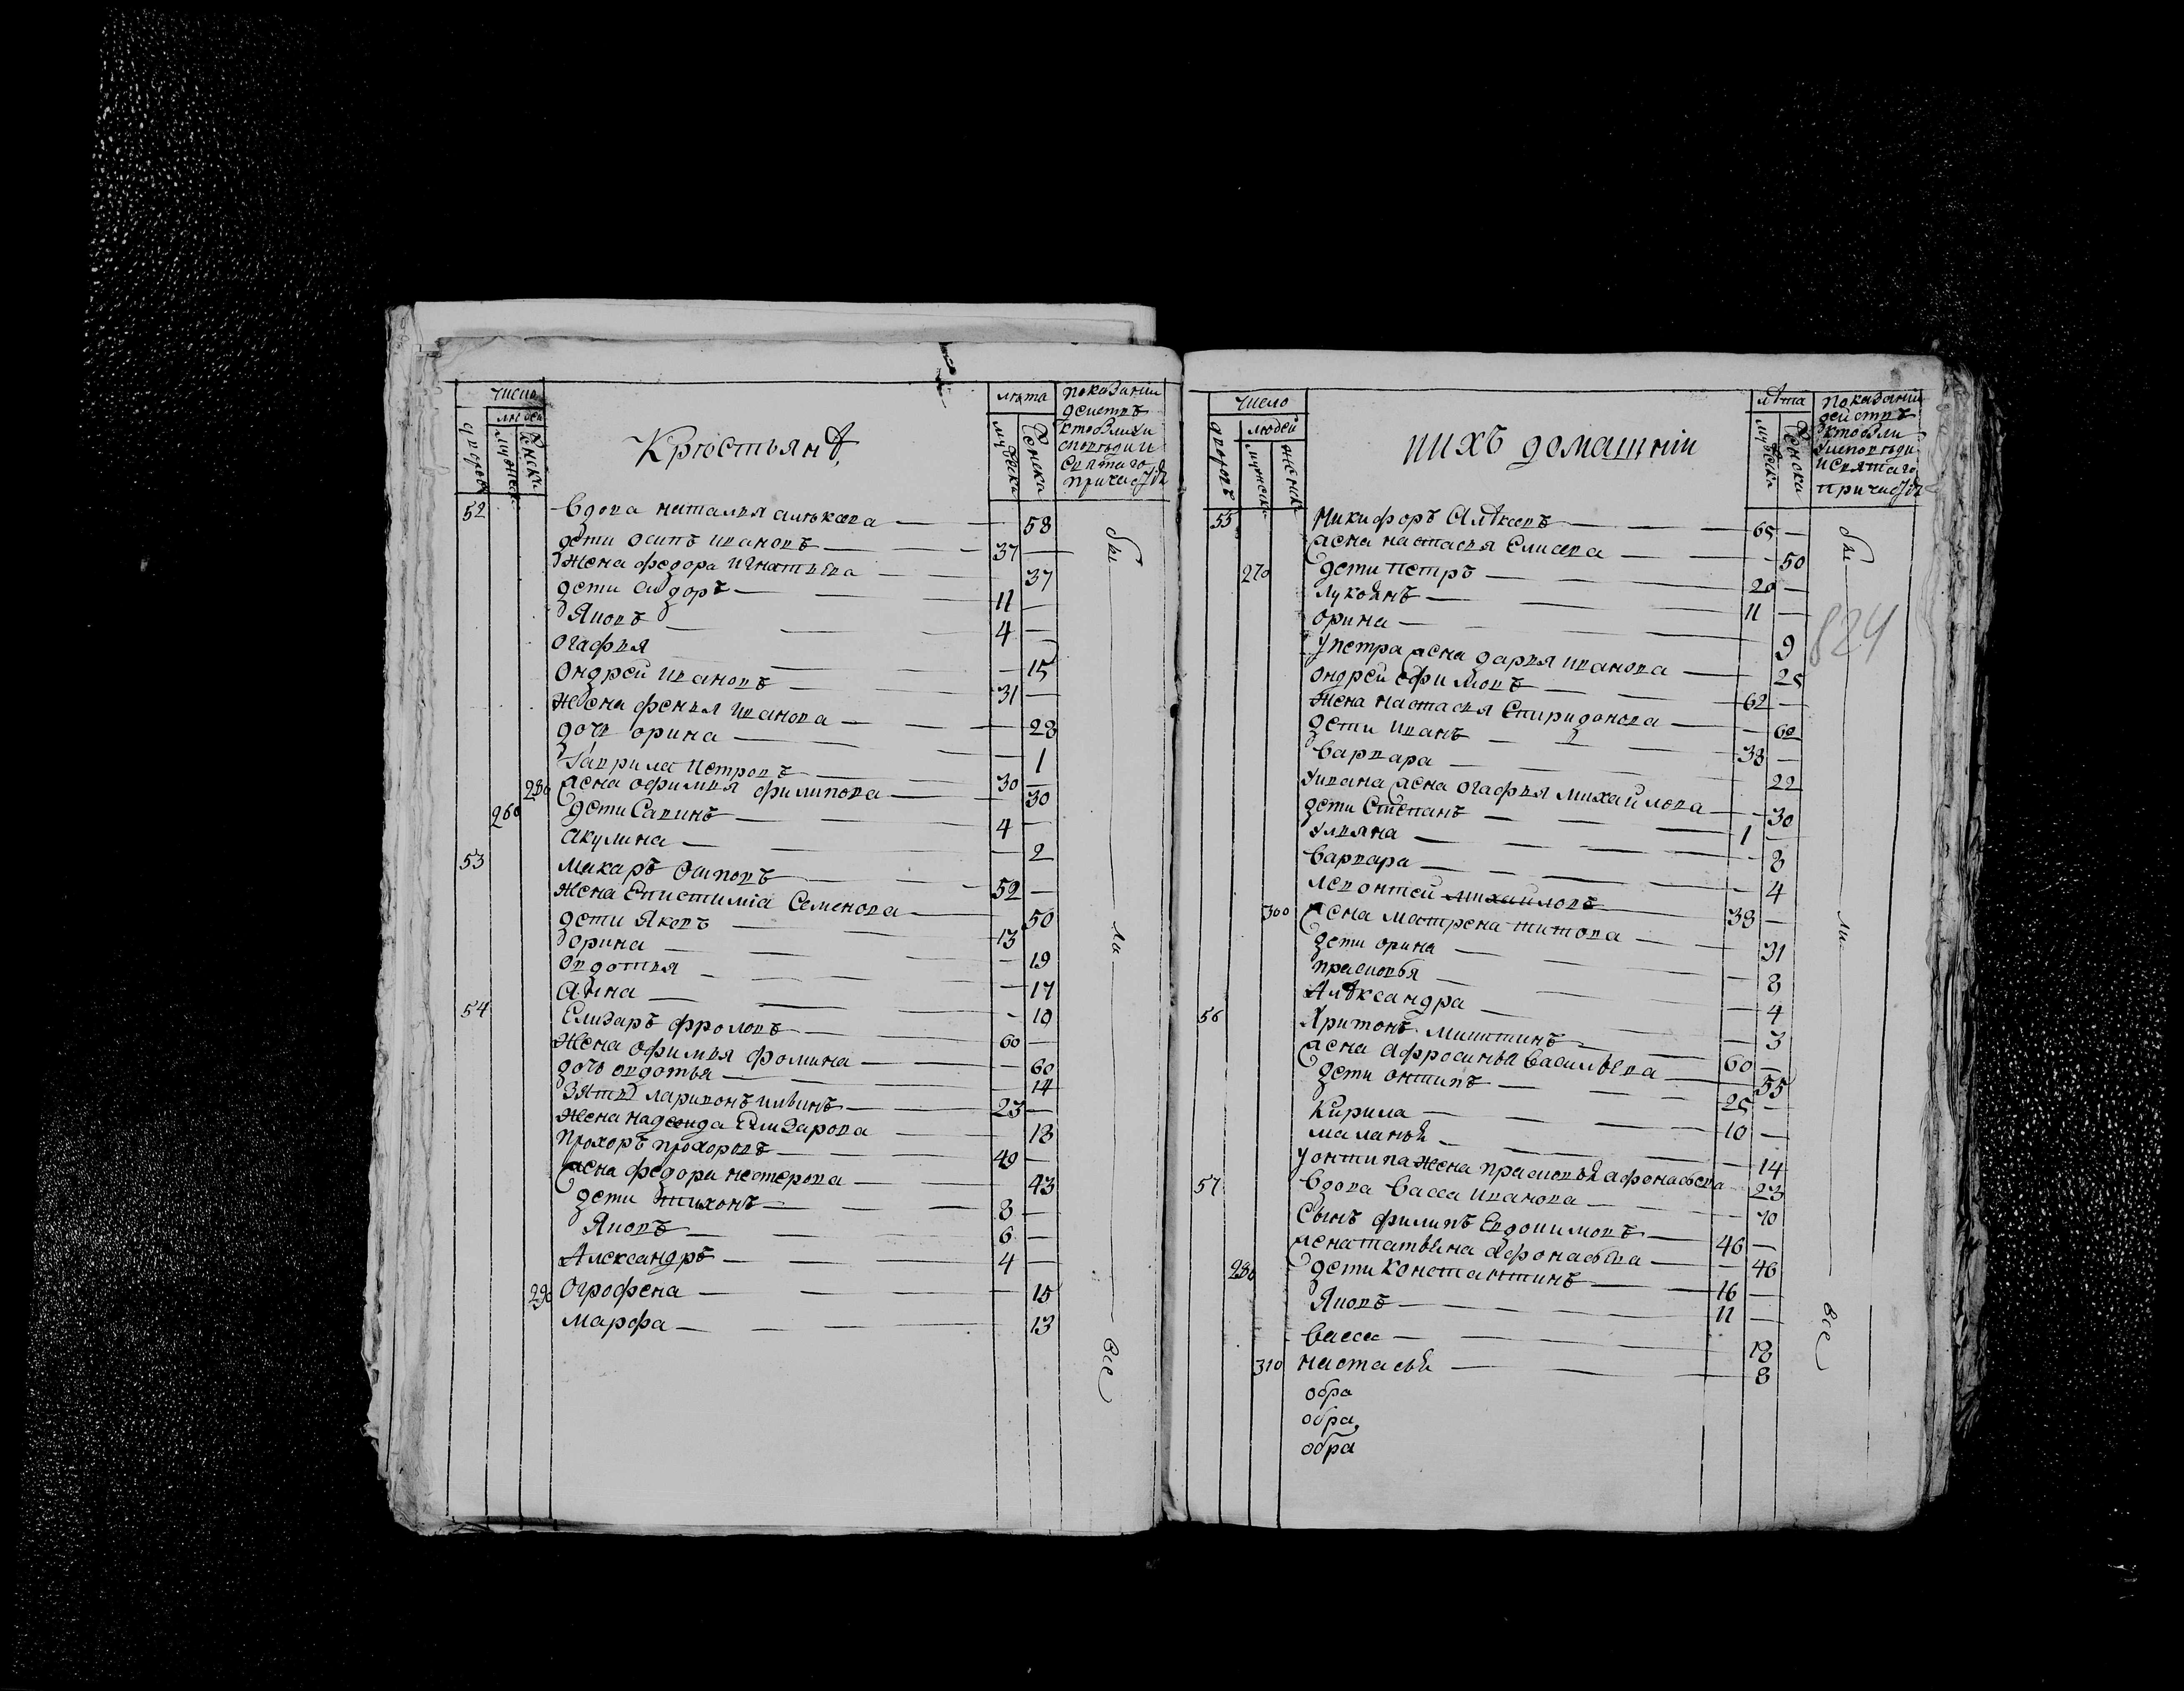 число
людей
дворовъ
мужеска
женска
Крѣстьянѣ
лѣта
мужеска
женска
показании
действъ
кто были
исповѣди и
святаго
причастія
52 вдова наталья алѣксѣва — 58
дети осипъ ивановъ — 37 —
жена федора игнатьева — 37
дети сидоръ — 11 —
Яковъ — 4 —
огафья — 15
ондрей ивановъ — 31 —
жена фекла иванова — 28
дочь орина — 1
Гаврила петровъ — 30 —
280 жена офимья филипова — 30
260 дети Савинъ — 4 —
акулина — 2
53 макаръ осиповъ — 52 —
жена Епистимiа Семенова — 50
дети Яковъ — 13
орина — 19
овдотья — 17
анна — 10
54 Елизаръ фроловъ — 60 —
жена офимья фомина — 60
дочь овдотья — 14
зять ларивонъ ильинъ — 23 —
жена надежда Елизарова — 18
прохоръ прохоровъ — 49 —
жена федора нестерова — 43
дети тихонъ — 8 —
Яковъ — 6 —
Александръ — 4 —
290 Огрофена — 15
марфа — 13
бы ли все
число
людей
дворовъ
мужеска
женска
ихъ домашнiи
лѣта
мужеска
женска
показании
действъ
кто были
у исповѣди
и святаго
причастія
824
55 Никифоръ Алѣксѣвъ — 65 —
жена настасья Елисѣва — 50
270 дети петръ — 20 —
лукоянъ — 11 —
орина — 9
у петра жена дарья иванова — 25
ондрей ефимовъ — 62 —
жена настасья Спиридонова — 60
дети иванъ — 38 —
варвара — 22
у ивана жена огафья михайлова — 30
дети Степанъ — 1 —
ульяна — 8
варвара — 4
леонтей михайловъ — 38 —
300 жена матрена титова — 31
дети орина — 8
прасковья — 4
Алѣксандра — 3
56 Харитонъ микитинъ — 60 —
жена афросинья васильева — 55
дети онтипъ — 25 —
Кирила — 10 —
маланья — 14
у онтипа жена прасковья афонасьева — 23
57 вдова васса иванова — 70
сынъ филипъ Евдокимовъ — 46 —
жена татьяна афонасьва — 46
280 дети константинъ — 16 —
Яковъ — 11 —
васса — 18
310 настасья — 8
обра
обра
обра
бы ли все